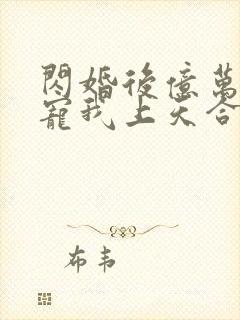 閃婚後億萬
寵我上天合
布韦